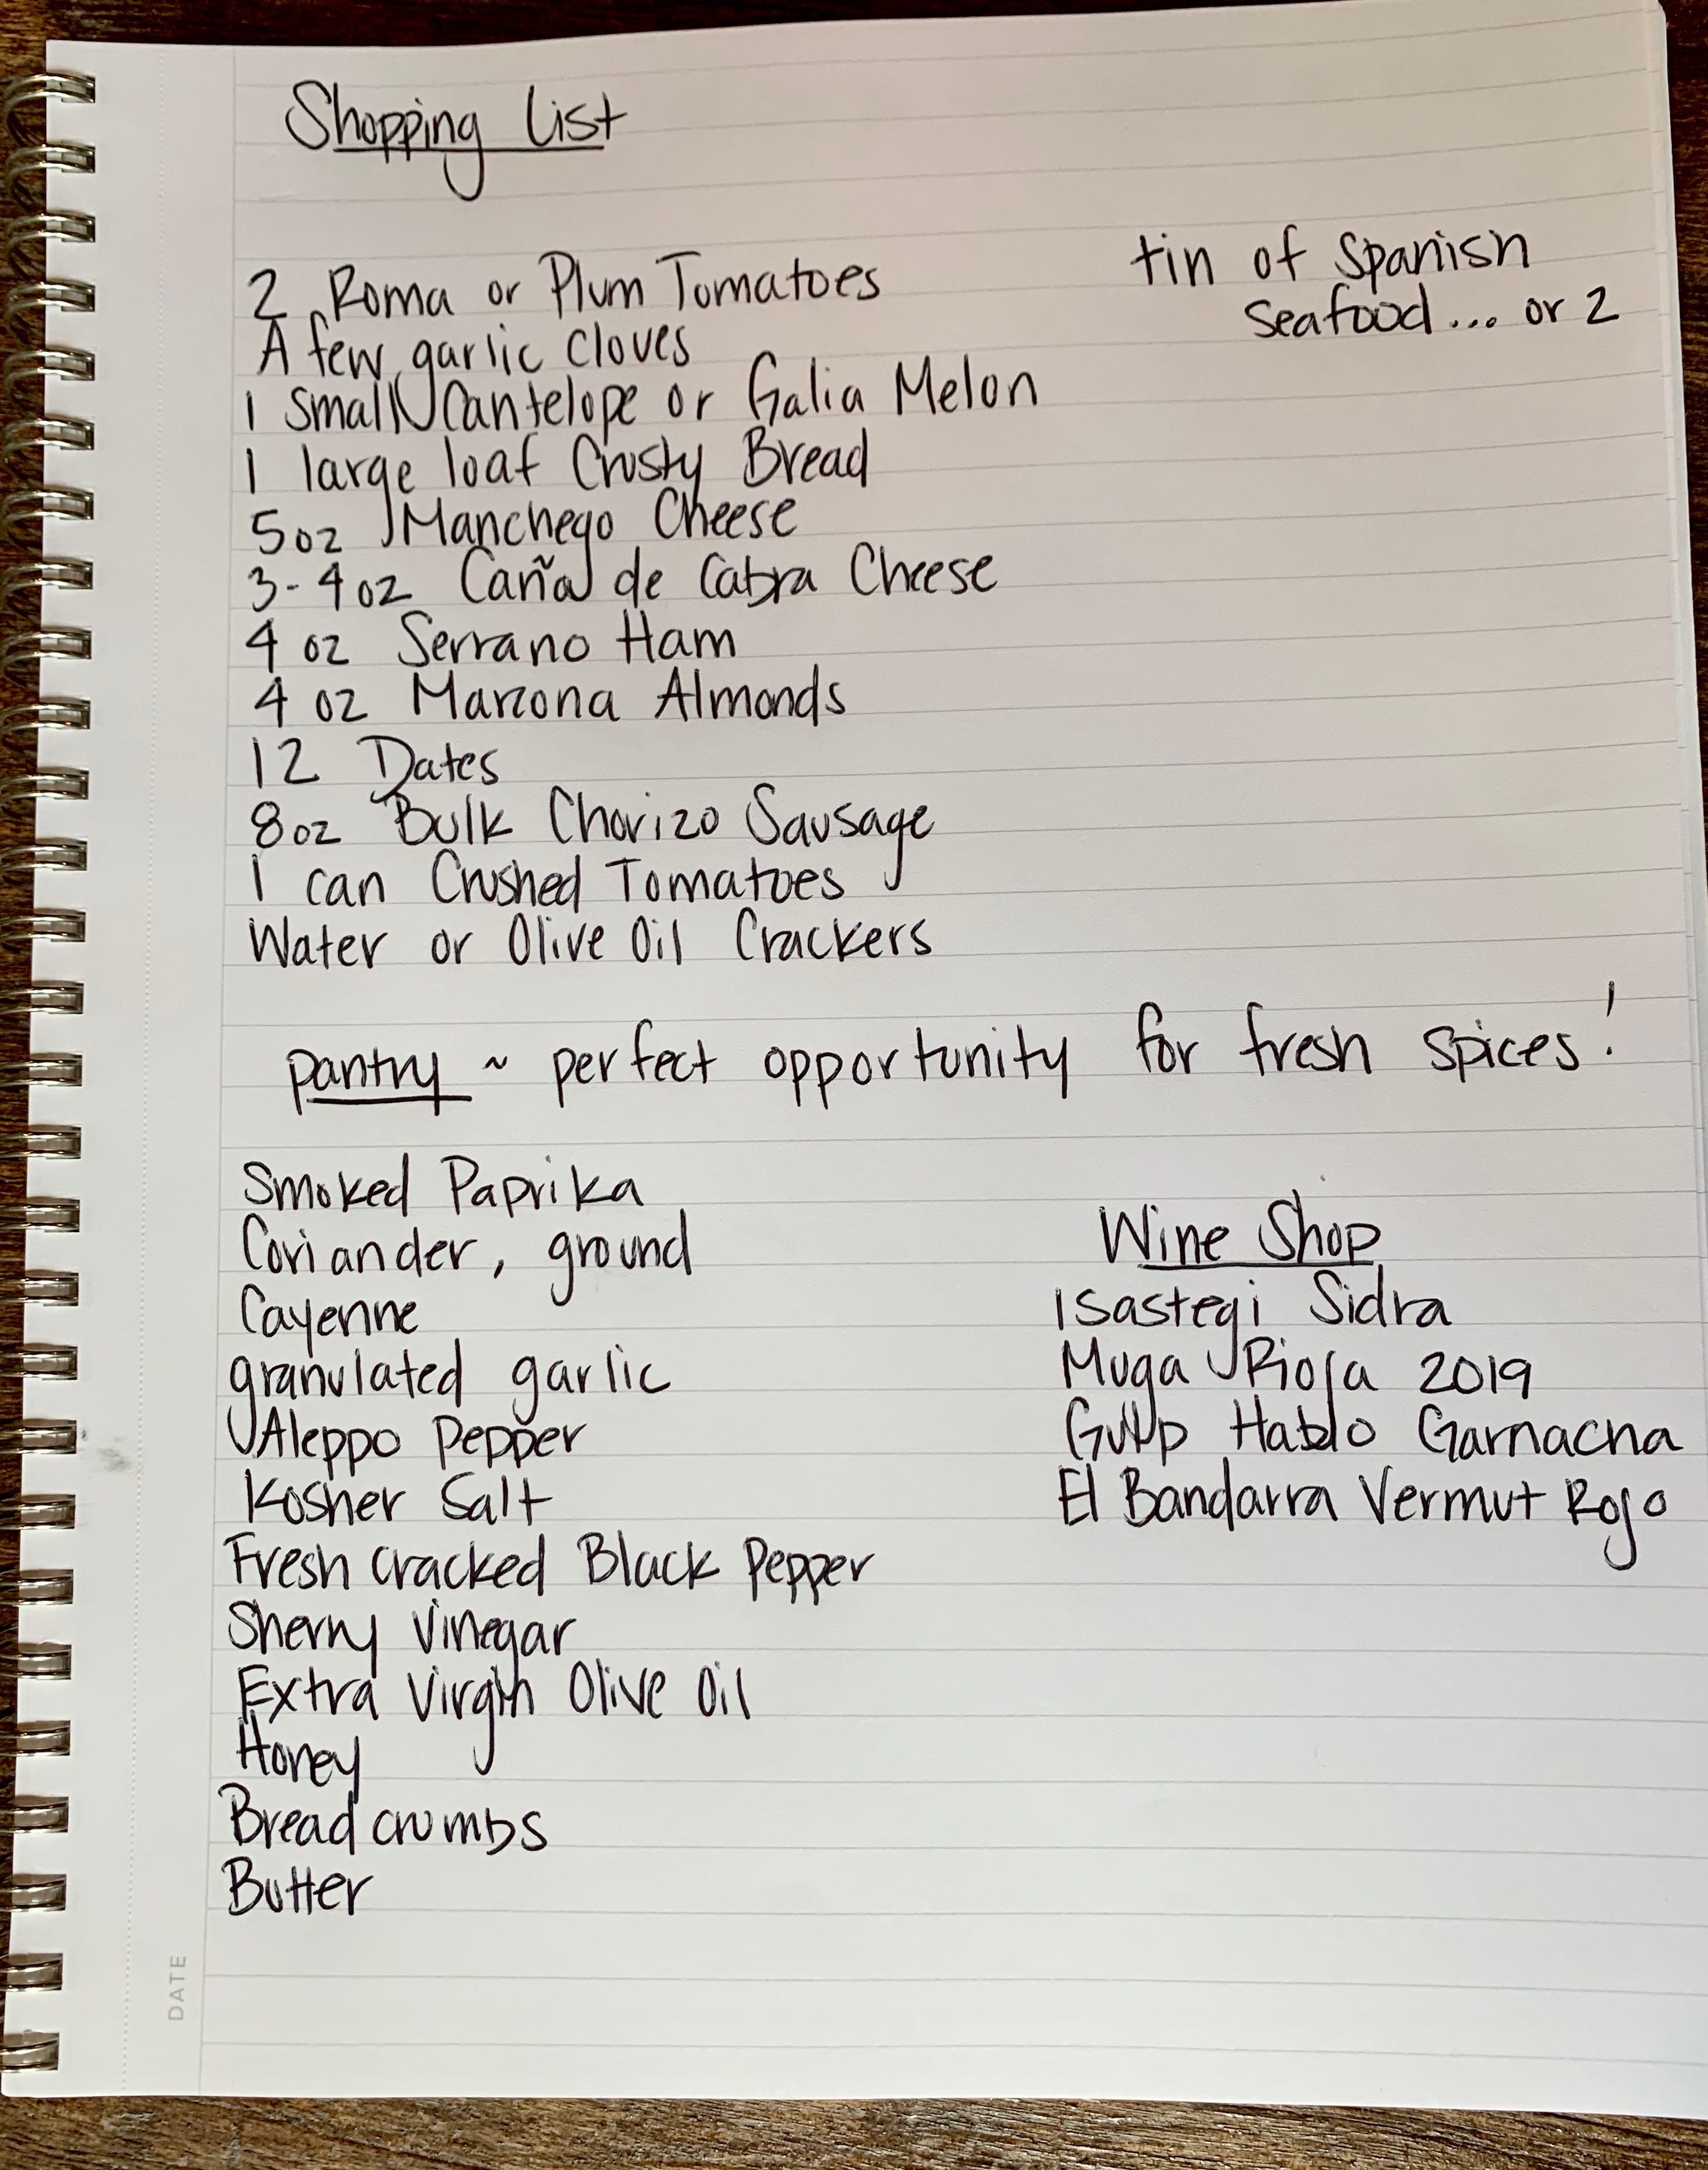 Shopping List
2 Roma or Plum Tomatoes
A few garlic cloves
1 small Cantelope or Galia Melon
1 large loaf Crusty Bread
5oz Manchego Cheese
3-4oz Caña de Cabra Cheese
4 oz Serrano Ham
4 oz Marcona Almonds
12 Dates
8oz Bulk Chorizo Sausage
1 can Crushed Tomatoes
Water or Olive Oil Crackers
tin of Spanish
seafood... or 2
pantry ~ perfect opportunity for fresh spices!
Smoked Paprika
Coriander, ground
Cayenne
granulated garlic
Aleppo pepper
Kosher Salt
Fresh cracked Black Pepper
Sherry Vinegar
Extra Virgin Olive Oil
Honey
Bread crumbs
Butter
Wine Shop
Isastegi Sidra
Muga Rioja 2019
Gulp Hablo Garnacha
El Bandarra Vermut Rojo
DATE